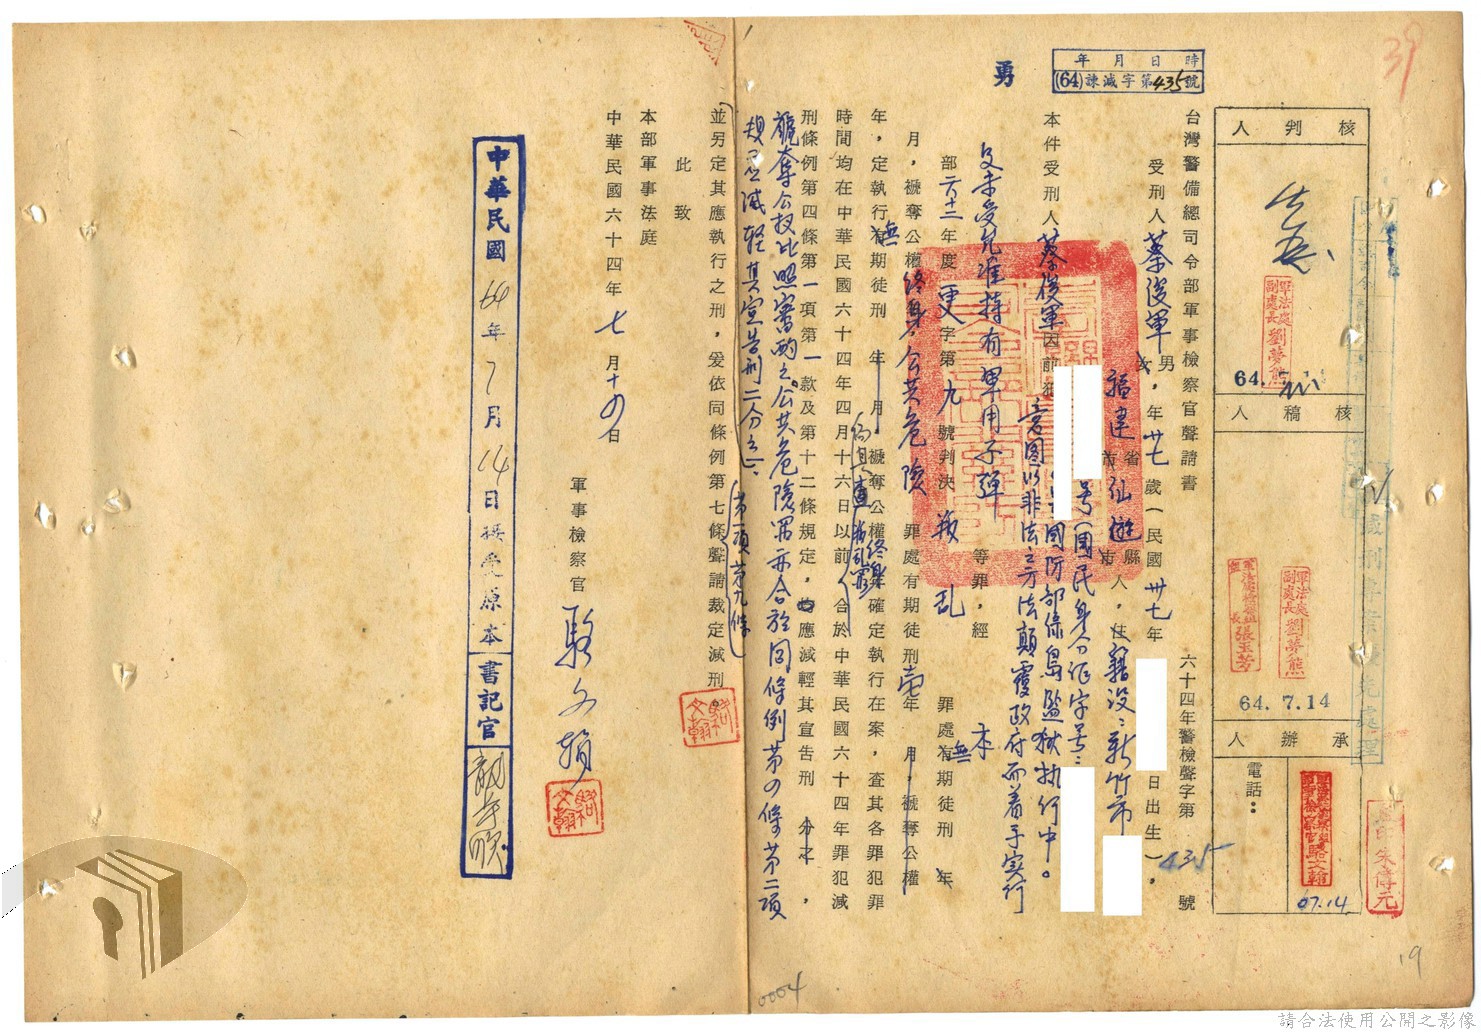 39
年月日時
(64)諫減字第435號
勇
核判人
劉夢熊
軍法處副處長
64.
核稿人
軍法處副處長劉夢熊
張玉芳
64.7.14
承辦人
電話：
駱文翰
07.14
監印朱傳元
台灣警備總司令部軍事檢察官聲請書
六十四年警檢聲字第435號
受刑人蔡俊軍男女，年卅七歲（民國卅七年日出生），
福建省市仙遊縣市人，住籍設：新竹市
號（國民身分證字號：
本件受刑人蔡俊軍因前犯
國防部綠島監獄執行中。
意圖以非法之方法顛覆政府而着手實行
及未受允准持有軍用子彈等罪，經本
部六十二年度更字第九號判決叛乱罪處有無期徒刑年
月，褫奪公權終身，公共危險罪處有期徒刑壹年月，褫奪公權
年，定執行有無期徒刑年月褫奪公權終身確定執行在案，查其各罪犯罪
時間均在中華民國六十四年四月十六日以前，合於中華民國六十四年罪犯減
刑條例第四條第一項第一款及第十二條規定，均應減輕其宣告刑分之，
褫奪公權比照審酌之。公共危險罪亦合於同條例第四條第二項
規定減輕其宣告刑二分之一，
並另定其應執行之刑，爰依同條例第七條第一項第九條聲請裁定減刑
此致
本部軍事法庭
中華民國六十四年七月十四日
軍事檢察官駱文翰
駱文翰
中華民國64年7月14日接受原本
書記官
0004
19
請合法使用公開之影像